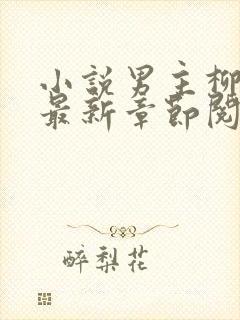 小說男主柳
最新章節閱
醉梨花